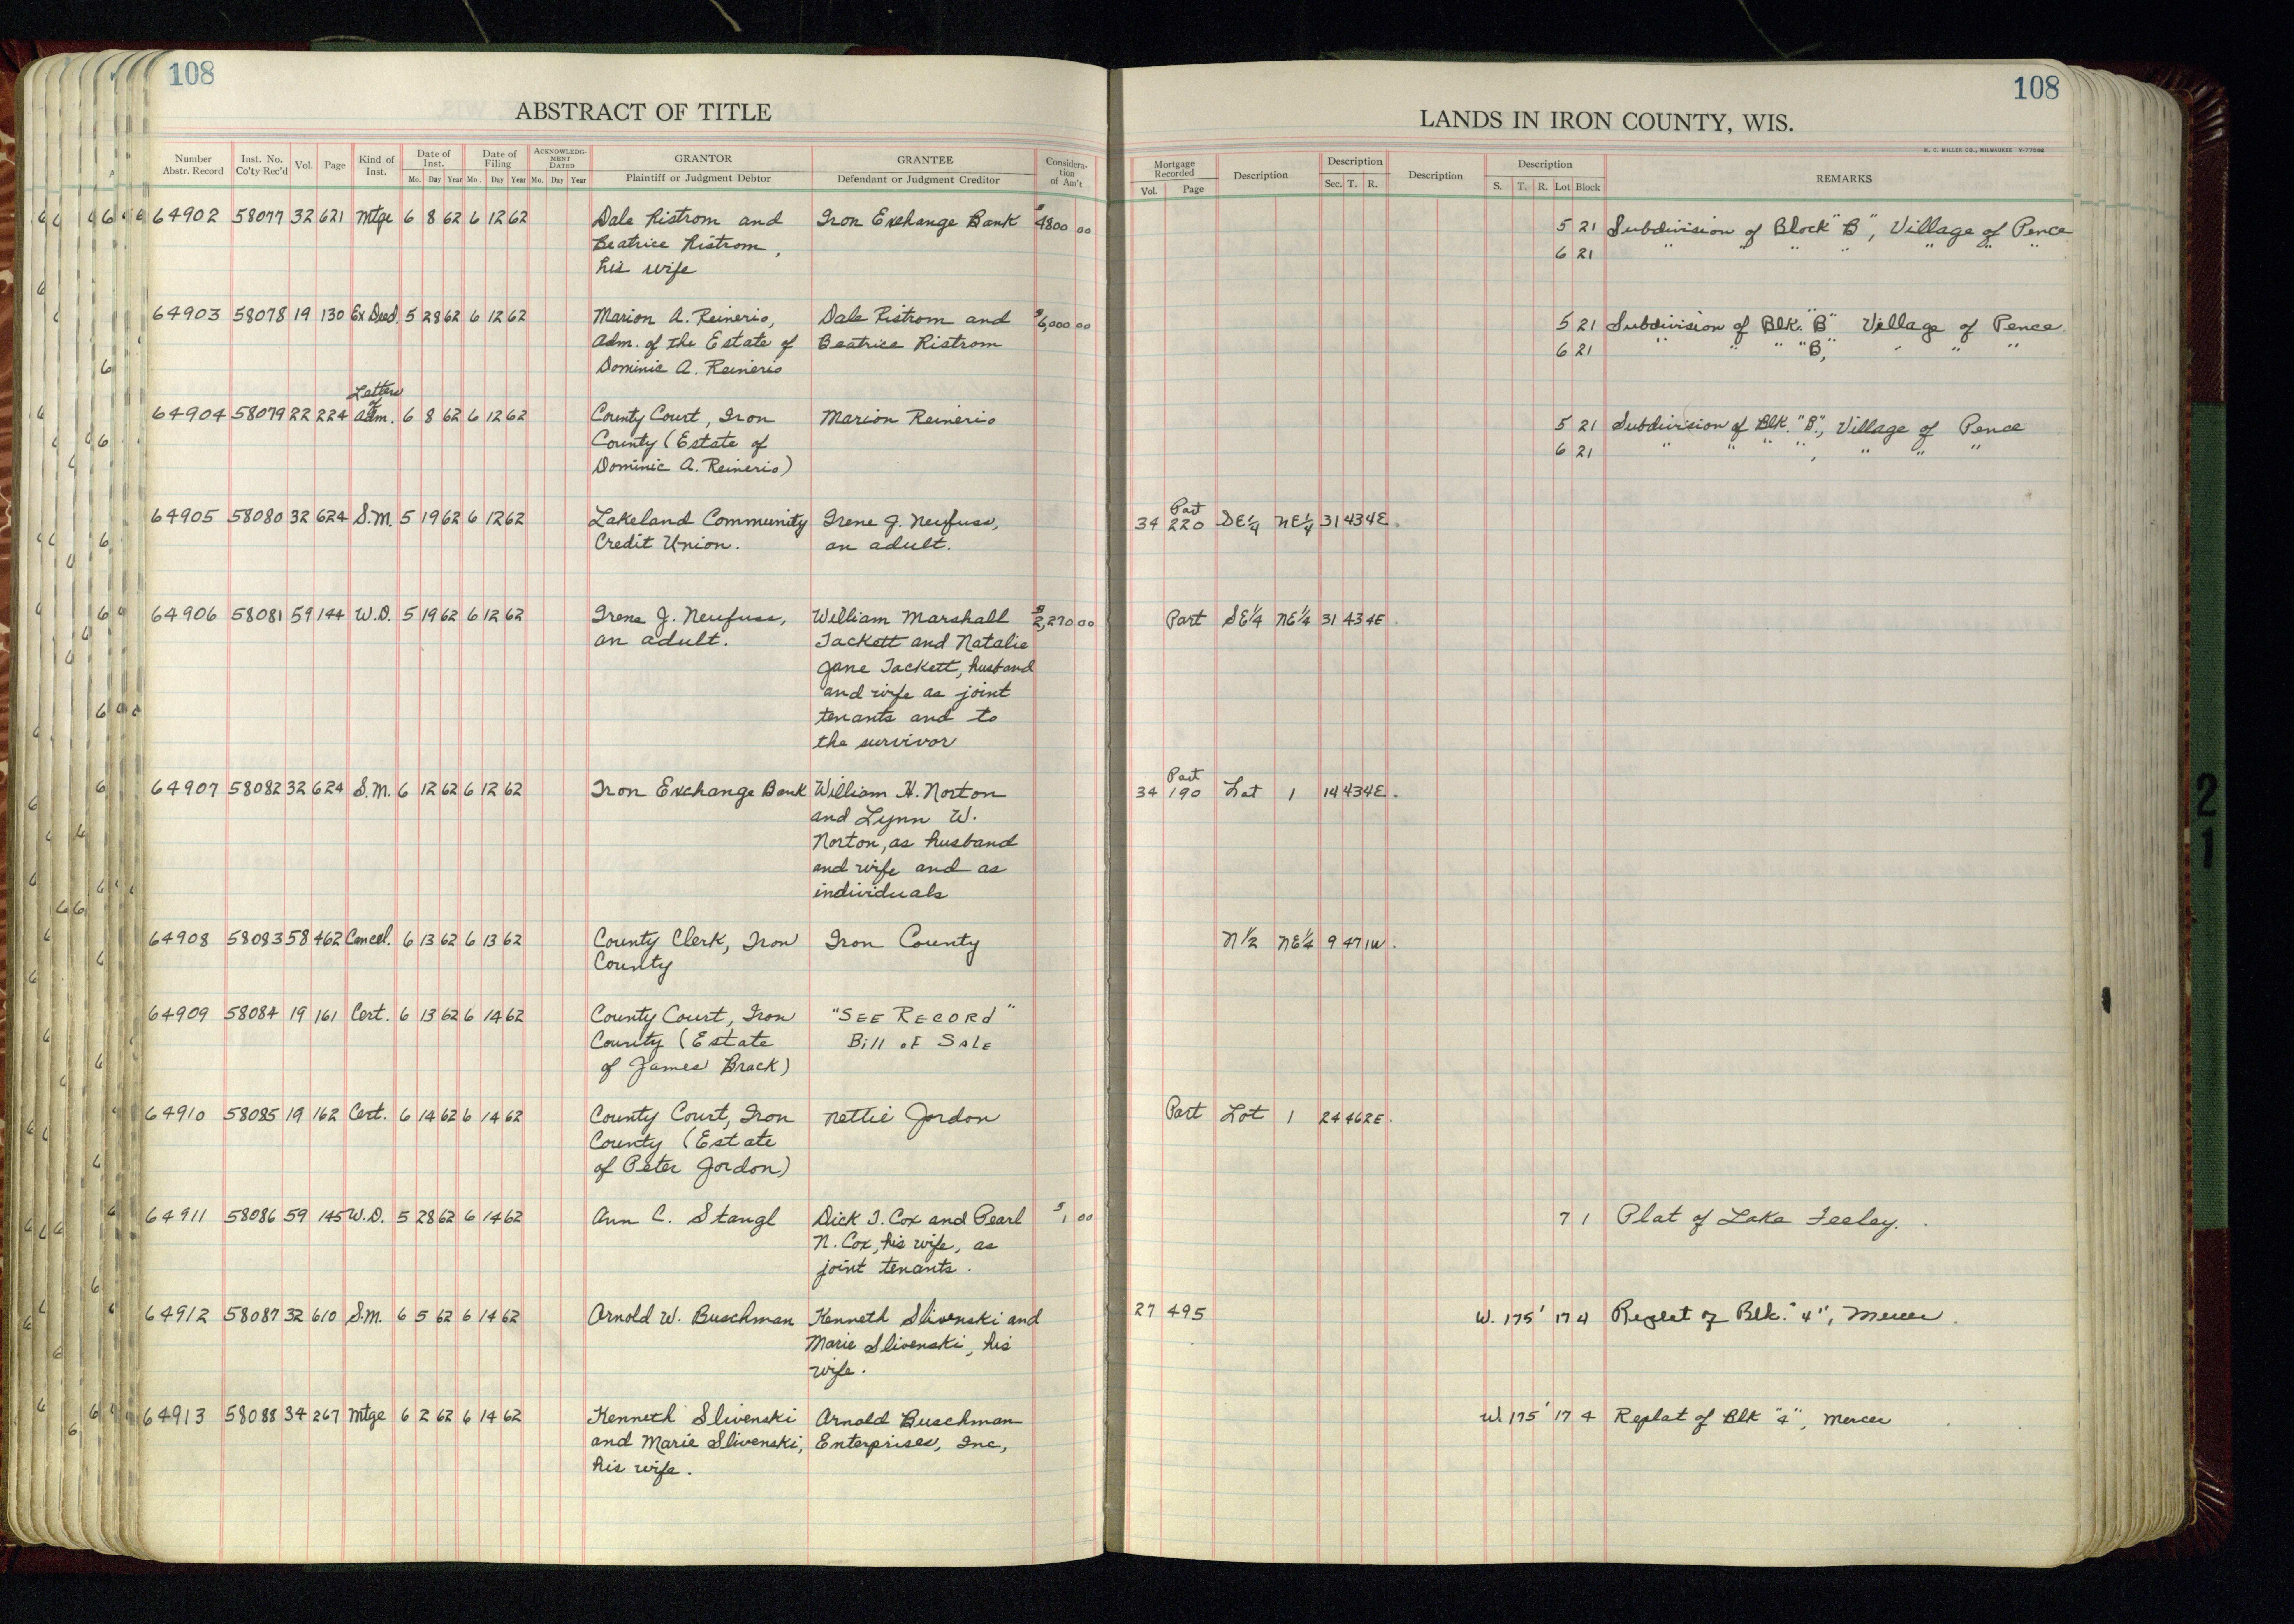 108
108
ABSTRACT OF TITLE
LANDS IN IRON COUNTY, WIS.
H. C. MILLER CO., MILWAUKEE
Number Abstr. Record Inst. No. Co'ty Rec'd Vol. Page Kind of Inst. Date of Inst. Mo. Day Year Date of Filing Mo. Day Year ACKNOWLEDGMENT DATED Mo. Day Year GRANTOR Plaintiff or Judgment Debtor GRANTEE Defendant or Judgment Creditor Considera-tion of Am't Mortgage Recorded Vol. Page Description Description Sec. T. R. Description Description S. T. R. Lot Block REMARKS
64902 58077 32 621 Mtge 6 8 62 6 12 62 Dale Ristrom and Iron Exchange Bank $4800 00 5 21 Subdivision of Block "B", Village of Pence
Beatrice Ristrom, 6 21 " " " " " " "
his wife
64903 58078 19 130 Ex Deed. 5 28 62 6 12 62 Marion A. Reinerio, Dale Ristrom and $6,000 00 5 21 Subdivision of Blk. "B" Village of Pence
Adm. of the Estate of Beatrice Ristrom 6 21 " " " "B," " " "
Dominic A. Reinerio
Letters
of
64904 58079 22 224 Adm. 6 8 62 6 12 62 County Court, Iron Marion Reinerio 5 21 Subdivision of Blk. "B", Village of Pence
County (Estate of 6 21 " " " ", " " "
Dominic A. Reinerio)
Part
64905 58080 32 624 S.M. 5 19 62 6 12 62 Lakeland Community Irene J. Neufuss, 34 220 SE¼ NE¼ 31 43 4E.
Credit Union. an adult.
64906 58081 59 144 W.D. 5 19 62 6 12 62 Irene J. Neufuss, William Marshall $2,270 00 Part SE¼ NE¼ 31 43 4E
an adult. Tackett and Natalie
Jane Tackett, husband
and wife as joint
tenants and to
the survivor
Part
64907 58082 32 624 S.M. 6 12 62 6 12 62 Iron Exchange Bank William H. Norton 34 190 Lot 1 14 43 4E.
and Lynn W.
Norton, as husband
and wife and as
individuals
64908 58083 58 462 Cancel. 6 13 62 6 13 62 County Clerk, Iron Iron County N½ NE¼ 9 47 1W.
County
64909 58084 19 161 Cert. 6 13 62 6 14 62 County Court, Iron "SEE RECORD"
County (Estate Bill of Sale
of James Brack)
64910 58085 19 162 Cert. 6 14 62 6 14 62 County Court, Iron Nettie Jordon Part Lot 1 24 46 2E.
County (Estate
of Peter Jordon)
64911 58086 59 145 W.D. 5 28 62 6 14 62 Ann C. Stangl Dick J. Cox and Pearl $1 00 7 1 Plat of Lake Feeley.
N. Cox, his wife, as
joint tenants.
64912 58087 32 610 S.M. 6 5 62 6 14 62 Arnold W. Buschman Kenneth Slivenski and 27 495 W. 175' 17 4 Replat of Blk. "4", Mercer.
Marie Slivenski, his
wife.
64913 58088 34 267 Mtge 6 2 62 6 14 62 Kenneth Slivenski Arnold Buschman W. 175' 17 4 Replat of Blk "4", Mercer
and Marie Slivenski, Enterprises, Inc,
his wife.
21